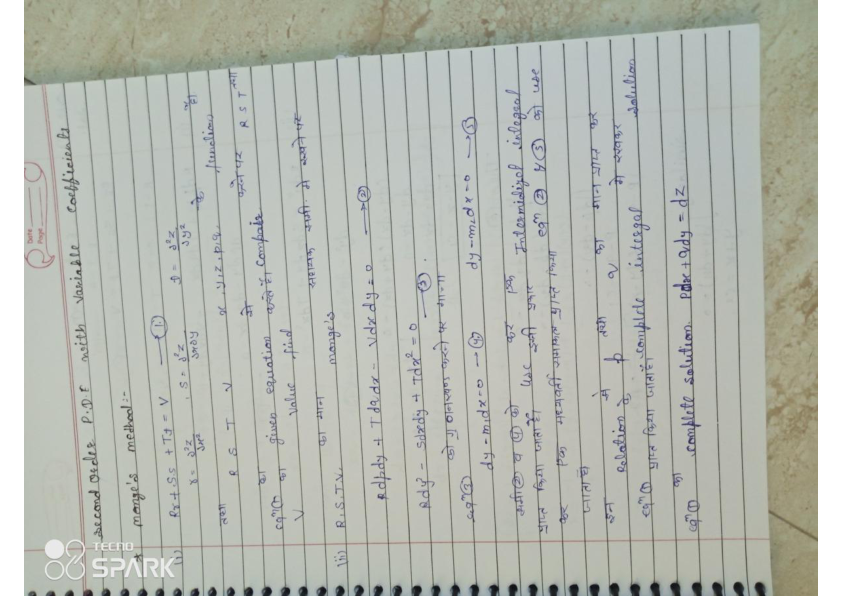 Date
Page
Second order P.D.E with variable coefficients
* monge's method:-
i) Rr + S.s + Tt = V → (1)
r = ∂²z/∂x² , s = ∂²z/∂x∂y t = ∂²z/∂y² है।
तथा R S T V x, y, z, p, q. के function
eqⁿ(1) का given equation से compair करने पर R S T तथा
V का value find करते है।
(ii) R.S.T.V. का मान monge's सहायक समी. मे रखने पर
Rdpdy + T dqdx - Vdxdy = 0 → (2)
Rdy² - Sdxdy + Tdx² = 0 → (3).
eqⁿ(3) को गुणनखण्ड करने पर माना
dy - m₁dx = 0 → (4) dy - m₂dx = 0 → (5)
समी (2) व (4) को use कर एक Intermidizal integral
प्राप्त किया जाता है। इसी प्रकार eqⁿ (2) & (5) को use
कर एक मध्यवर्ती समाकल प्राप्त किया
जाता है
इन Relation से p तथा q का मान प्राप्त कर
के मे रखकर
eqⁿ(1) complete intergal solution
प्राप्त किया जाता है।
eqⁿ(1) का complete solution pdx + qdy = dz.
TECNO
SPARK